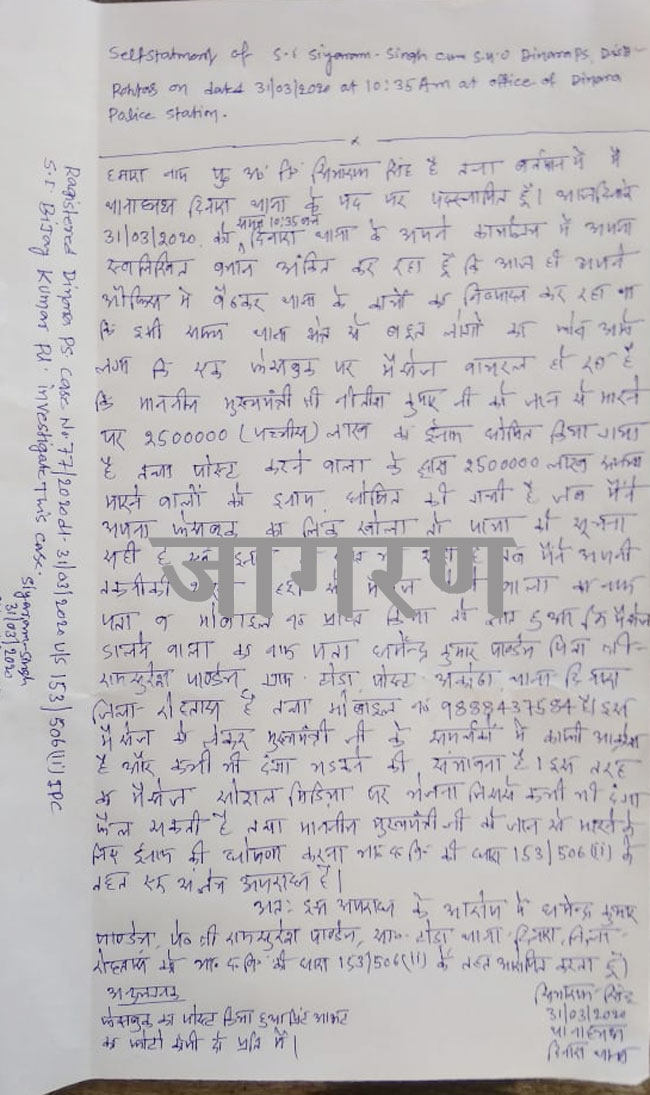 Selfstatment of S.I Siyaram Singh cum S.H.O Dinara PS, Dist-
Rohtas on dated 31/03/2020 at 10:35 Am at office of Dinara
Police station.
हमारा नाम पु० अ० नि० सियाराम सिंह है तथा वर्तमान में मैं
थानाध्यक्ष दिनारा थाना के पद पर पदस्थापित हूँ। आज दिनांक
समय 10:35 बजे
31/03/2020 को दिनारा थाना के अपने कार्यालय में अपना
स्वलिखित बयान अंकित कर रहा हूँ कि आज ही अपने
ऑफिस में बैठकर थाना के कार्यों का निष्पादन कर रहा था
कि इसी समय थाना क्षेत्र से बहुत लोगों का फोन आने
लगा कि एक फेसबुक पर मैसेज वायरल हो रहा है
कि माननीय मुख्यमंत्री श्री नीतीश कुमार जी को जान से मारने
पर 2500000 (पच्चीस) लाख का ईनाम घोषित किया गया
है तथा पोस्ट करने वाला के द्वारा 2500000 लाख रूपया
मारने वालों को इनाम घोषित की गयी है जब मैंने
अपना फेसबुक का लिंक खोला तो पाया की सूचना
सही है तब मैंने अपनी
तकनीकी से मैसेज वाला का नाम
पता व मोबाइल नं० प्राप्त किया तो ज्ञात हुआ कि मैसेज
डालने वाला का नाम पता धर्मेन्द्र कुमार पाण्डेय पिता श्री-
रामसुरेश पाण्डेय ग्राम- टोडा, पोस्ट- थाना दिनारा
जिला- रोहतास है तथा मोबाइल नं० 9888437584 है। इस
मैसेज को लेकर मुख्यमंत्री जी के समर्थकों में काफी आक्रोश
है और कभी भी दंगा भड़कने की संभावना है। इस तरह
का मैसेज सोशल मिडिया पर भेजना जिससे कभी भी दंगा
फैल सकती है तथा माननीय मुख्यमंत्री जी को जान से मारने के
लिए ईनाम की घोषणा करना भा० द० वि० की धारा 153/506(ii) के
तहत एक संज्ञेय अपराध है।
अतः इस अपराध के आरोप में धर्मेन्द्र कुमार
पाण्डेय, पे० श्री रामसुरेश पाण्डेय, सा०- टोडा थाना- दिनारा, जिला-
रोहतास को भा० द० वि० की धारा 153/506(ii) के तहत आरोपित करता हूँ।
अनुलग्नक
फेसबुक का पोस्ट किया हुआ प्रिंट आउट
का फोटो कॉपी दो प्रति में।
सियाराम सिंह
31/03/2020
थानाध्यक्ष
दिनारा थाना
Ragistered Dinara PS Case No 77/2020 dt 31/03/2020 U/S 153/506(ii) IPC
S.I Bijay Kumar Pd. investigate This case.
Siyaram Singh
31/03/2020
जागरण